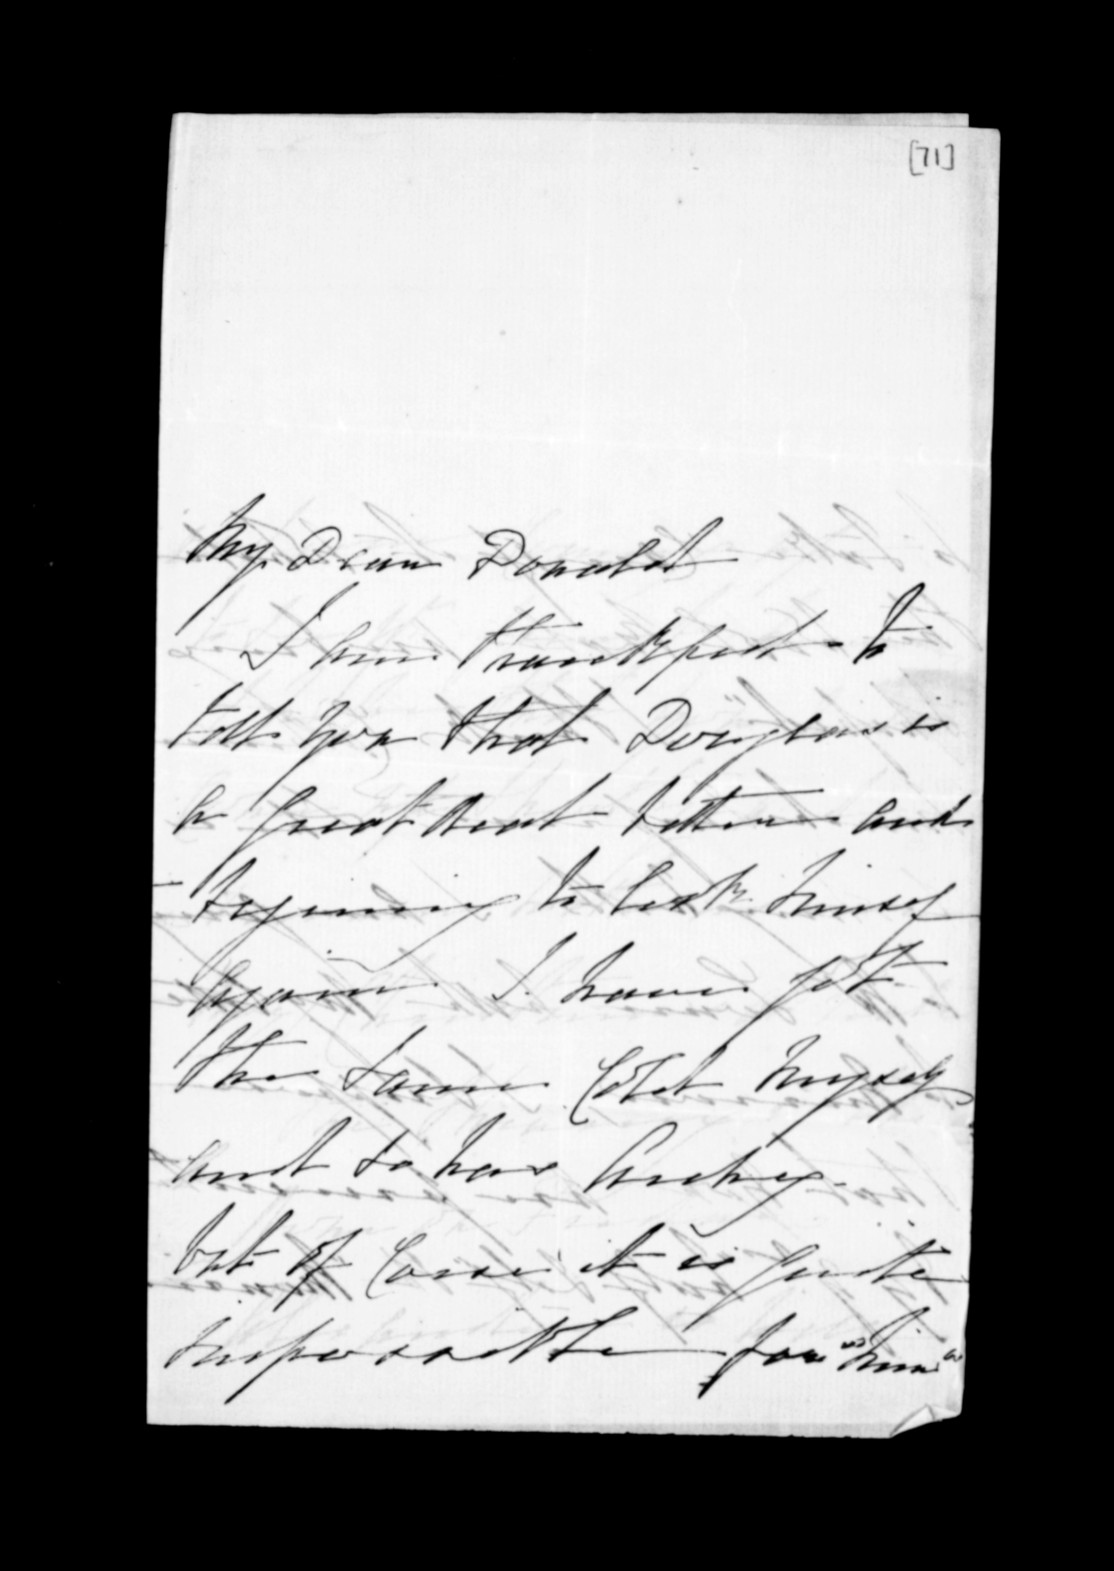 [71]
My Dear Donald
I am thankful to
tell you that Douglas is
a great deal better and
begining to look himself
again. I have got
the same Cold myself
and so has Audrey.
but of Corse it is quite
impossible for "him"